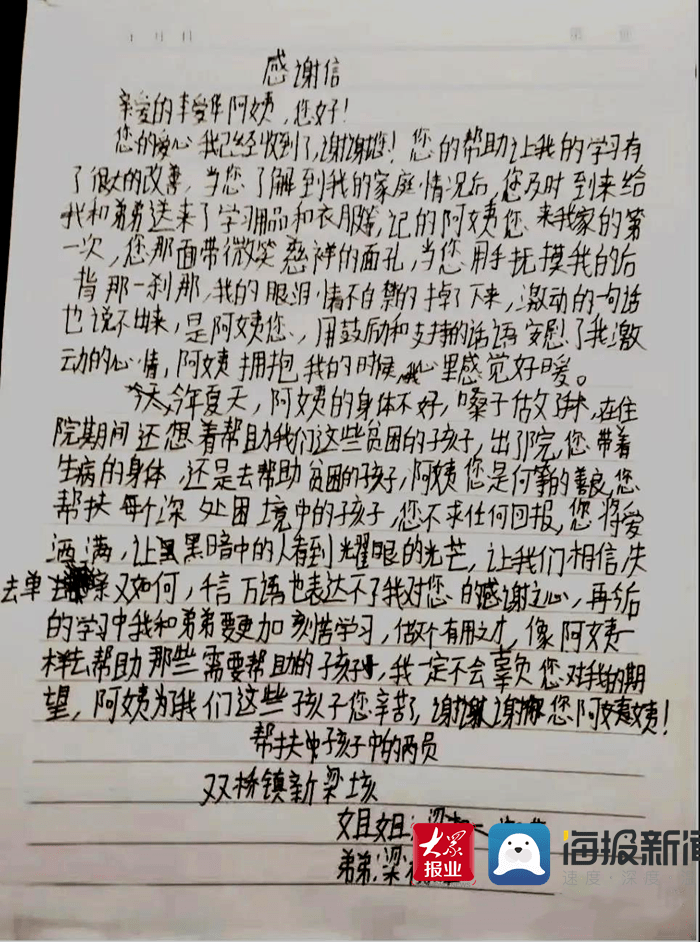 感谢信
亲爱的丰爱华阿姨,您好!
您的爱心我己经收到了,谢谢您!您的帮助让我的学习有
了很大的改善,当您了解到我的家庭情况后,您及时到来给
我和弟弟送来了学习用品和衣服等,记的阿姨您来我家的第
一次,您那面带微笑慈祥的面孔,当您用手抚摸我的后
背那一刹那,我的眼泪情不自禁的掉了下来,激动的一句话
也说不出来,是阿姨您,用鼓励和支持的话语安慰了我激
动的心情,阿姨拥抱我的时候,我心里感觉好暖。
今天,今年夏天,阿姨的身体不好,嗓子做了手术,在住
院期间还想着帮助我们这些贫困的孩子,出了院,您带着
生病的身体,还是去帮助贫困的孩子,阿姨您是何等的善良,您
帮扶每个深处困境中的孩子,您不求任何回报,您将爱
洒满,让黑暗中的人看到光耀眼的光芒,让我们相信,失
去单亲又如何,千言万语也表达不了我对您的感谢之心,再后
的学习中我和弟弟要更加刻苦学习,做个有用之才,像阿姨一
样去帮助那些需要帮助的孩子,我一定不会辜负您对我的期
望,阿姨为了我们这些孩子您辛苦了,谢谢谢谢您阿姨!
帮扶中孩子中的两员
双桥镇新梁垓
姐姐:梁
弟弟:梁
大众
报业
海报新闻
速度·深度